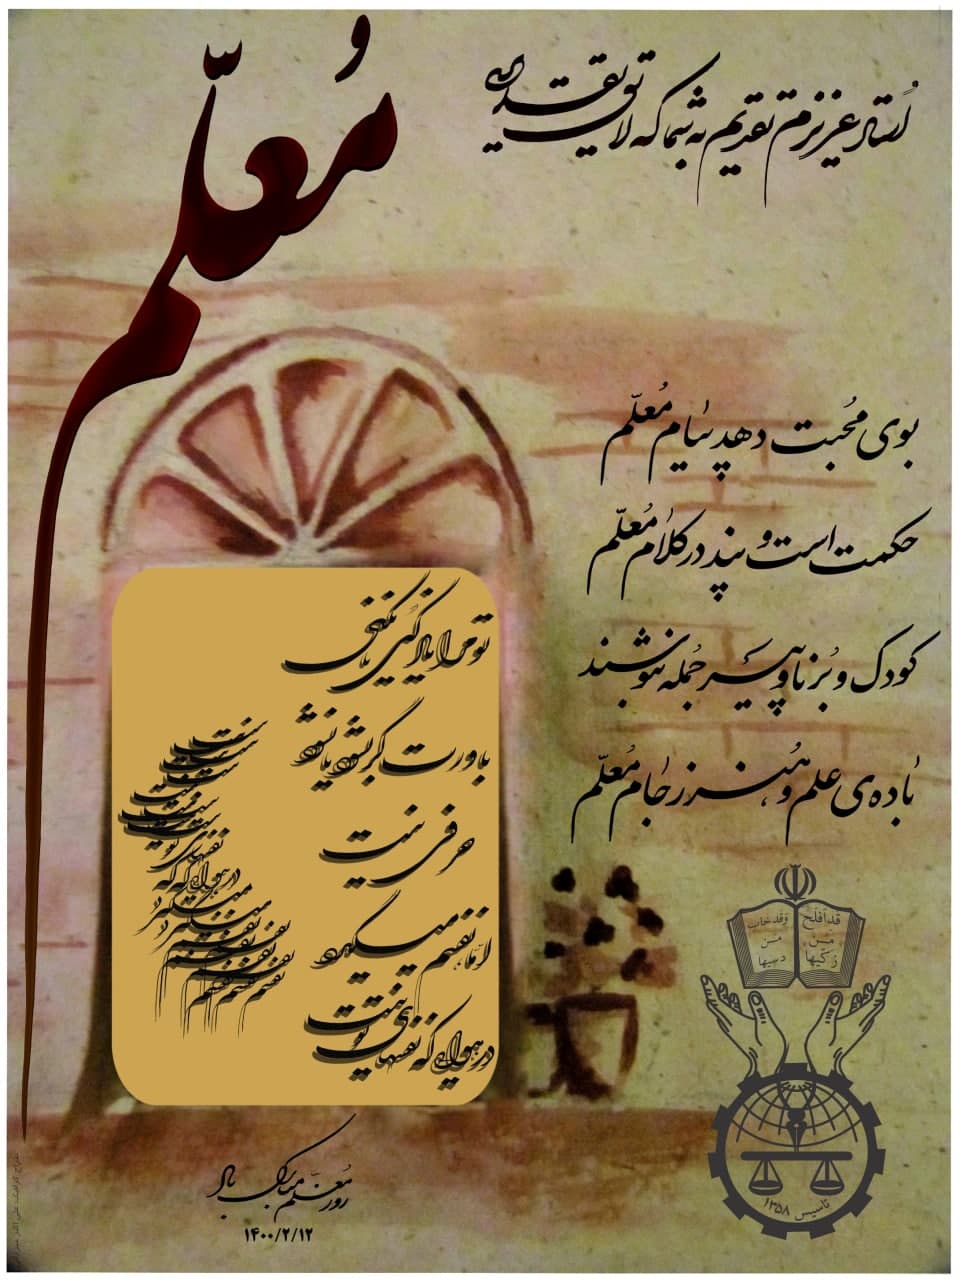 معلّم
اُستاد عزیزم تقدیم به شما که لایق تقدیرید
بوی محبت دهد پیام معلّم
حکمت است و پند در کلام معلّم
کودک و برنا و پیر جمله بنوشند
باده‌ی علم و هنر ز جام معلّم
تو مرا یاد کنی یا نکنی
باورت گر بشود یا نشود
حرفی نیست
اما نفسم میگیرد
در هوایی که نفسهای تو نیست
قد افلح من زکیها
وقد خاب من دسیها
تاسیس ۱۳۵۸
روز معلّم مبارک باد
۱۴۰۰/۲/۱۲